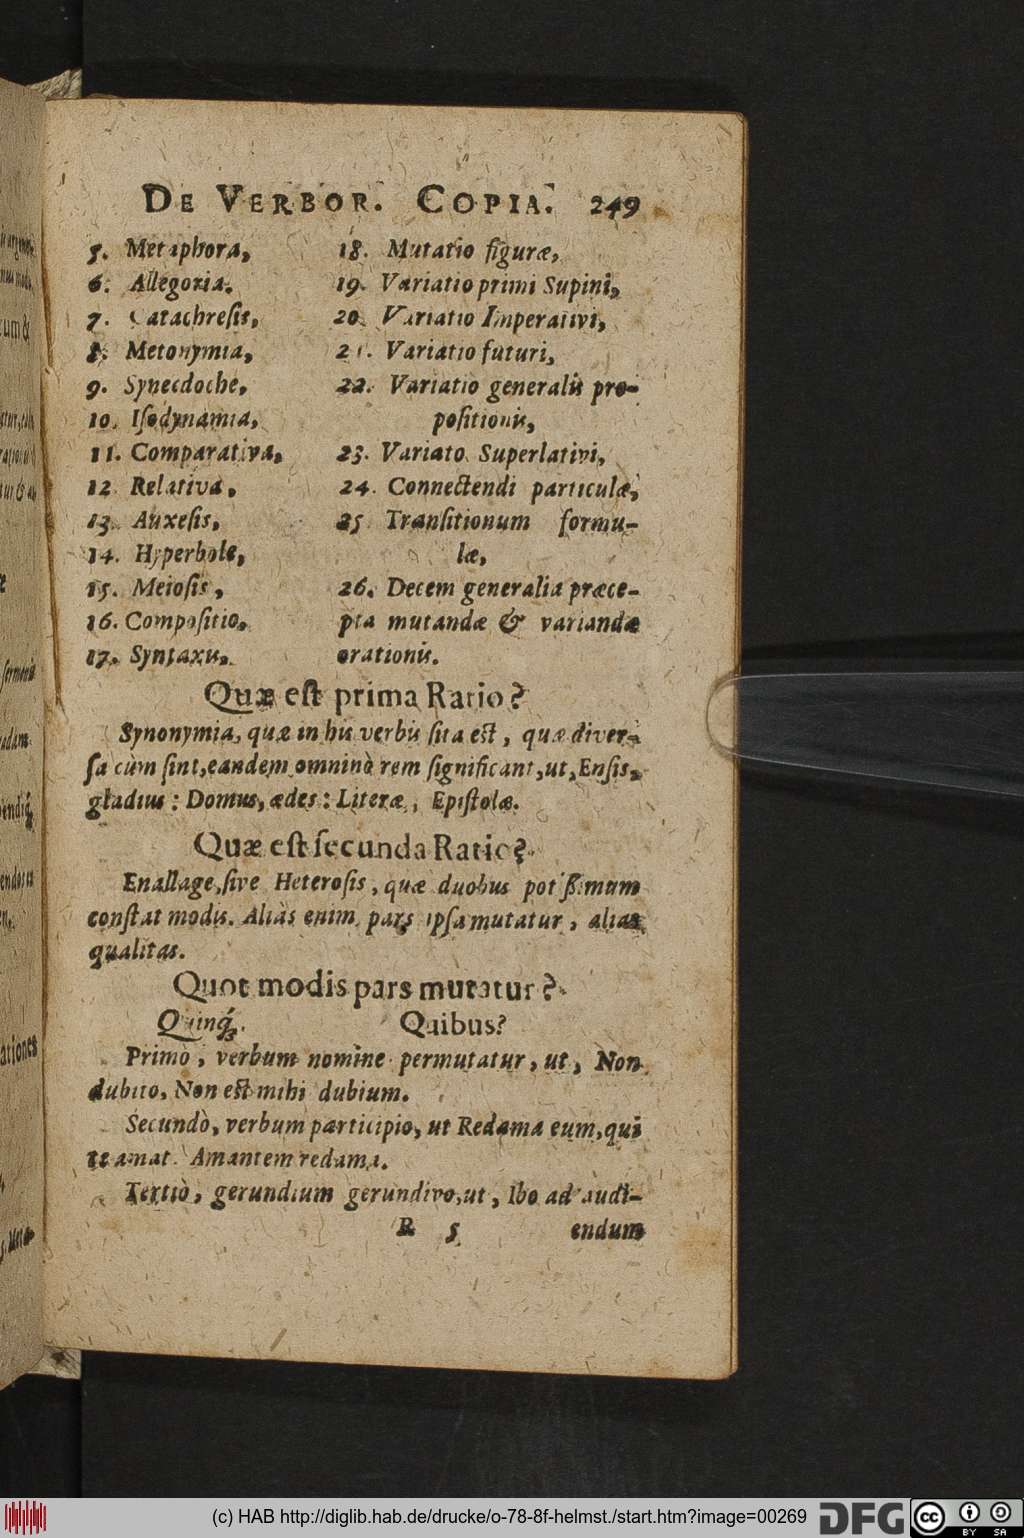 DE VERBOR. COPIA. 249
5. Metaphora,
6. Allegoria.
7. Catachresis,
8. Metonymia,
9. Synecdoche,
10. Iſodynamia,
11. Comparativa,
12 Relativa,
13. Auxeſis,
14. Hyperbole,
15. Meioſis,
16. Compoſitio,
17. Syntaxis.
18. Mutatio figuræ,
19. Variatio primi Supini,
20. Variatio Imperativi,
21. Variatio futuri,
22. Variatio generalis pro-
poſitionis,
23. Variato Superlativi,
24. Connectendi particulæ,
25 Tranſitionum formu-
læ,
26. Decem generalia præce-
pta mutandæ & variandæ
orationis.
Quæ eſt prima Ratio?
Synonymia, quæ in his verbis ſita eſt, quæ diver-
ſa cùm ſint, eandem omninò rem ſignificant, ut, Enſis,
gladius: Domus, ædes: Literæ, Epiſtolæ.
Quæ eſt ſecunda Ratio?
Enallage, ſive Heteroſis, quæ duobus potißimum
conſtat modis. Aliàs enim pars ipſa mutatur, aliàs
qualitas.
Quot modis pars mutatur?
Quinq́;. Quibus?
Primò, verbum nomine permutatur, ut, Non
dubito, Non eſt mihi dubium.
Secundò, verbum participio, ut Redama eum, qui
te amat. Amantem redama.
Tertiò, gerundium gerundivo, ut, Ibo ad audi-
R 5 endum
(c) HAB http://diglib.hab.de/drucke/o-78-8f-helmst./start.htm?image=00269
DFG
cc BY SA